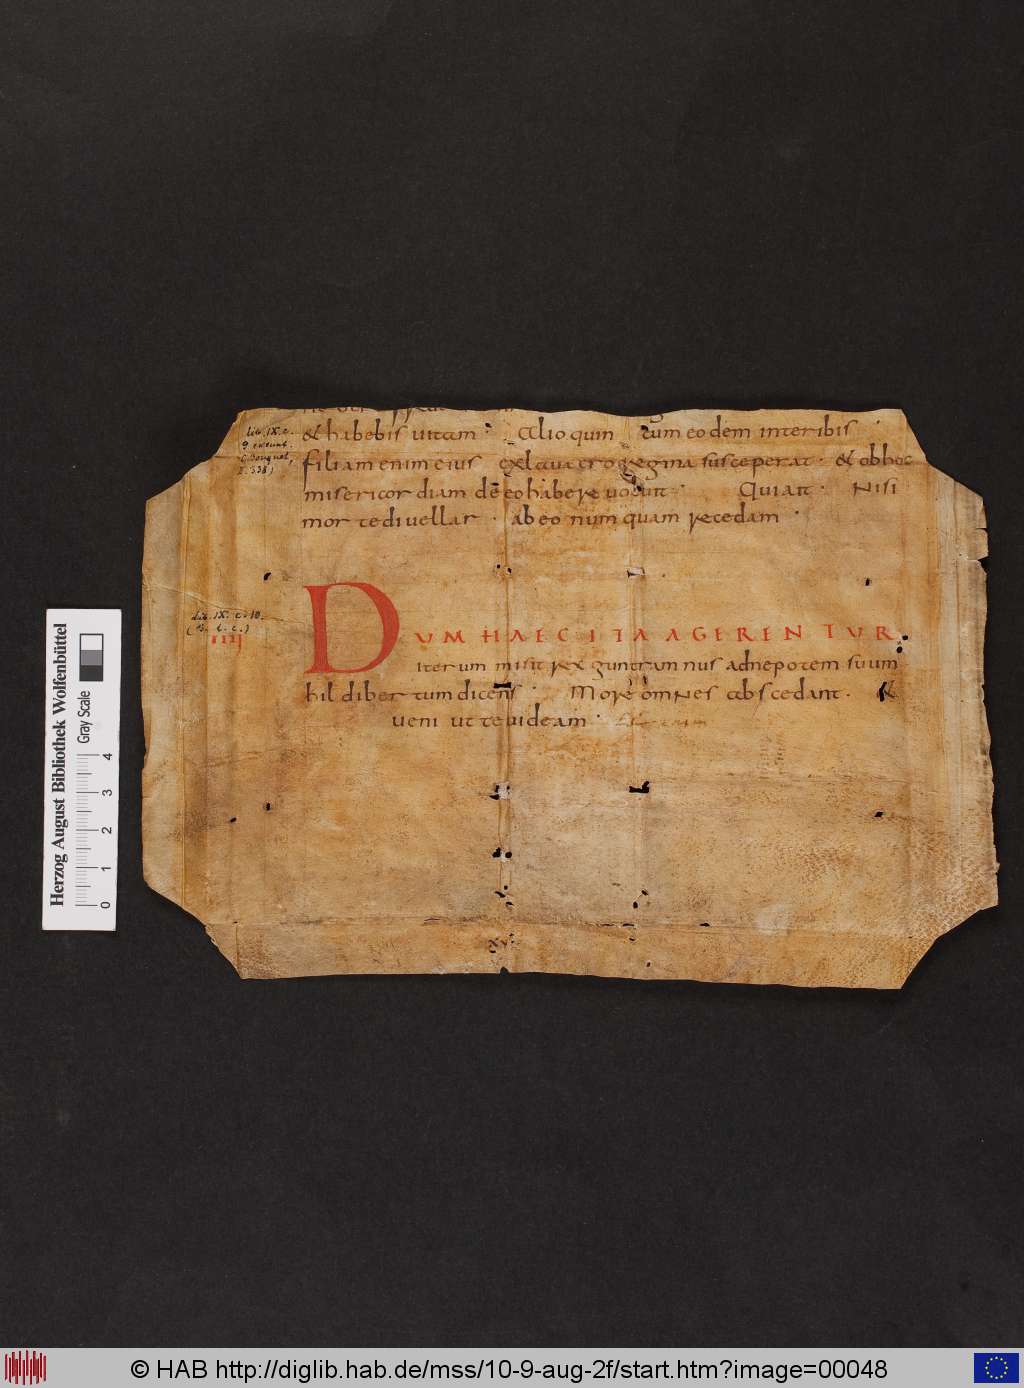 & habebis uitam · Alioquin cum eodem interibis ·
filiam enim eius ex lauacro regina susceperat · & ob hoc
misericordiam de eo habere uoluit · Qui ait · Nisi
morte diuellar · ab eo numquam recedam ·
lib. IX. c.
9. exeunt.
2. 338)
lib. IX. c. 10.
IIIJ
DUM HAEC ITA AGERENTUR
iterum misit rex guntramnus ad nepotem suum
hildibertum dicens · More omnes abscedant · &
ueni ut te uideam ·
XV
Herzog August Bibliothek Wolfenbüttel
Gray Scale
0 1 2 3 4
© HAB http://diglib.hab.de/mss/10-9-aug-2f/start.htm?image=00048